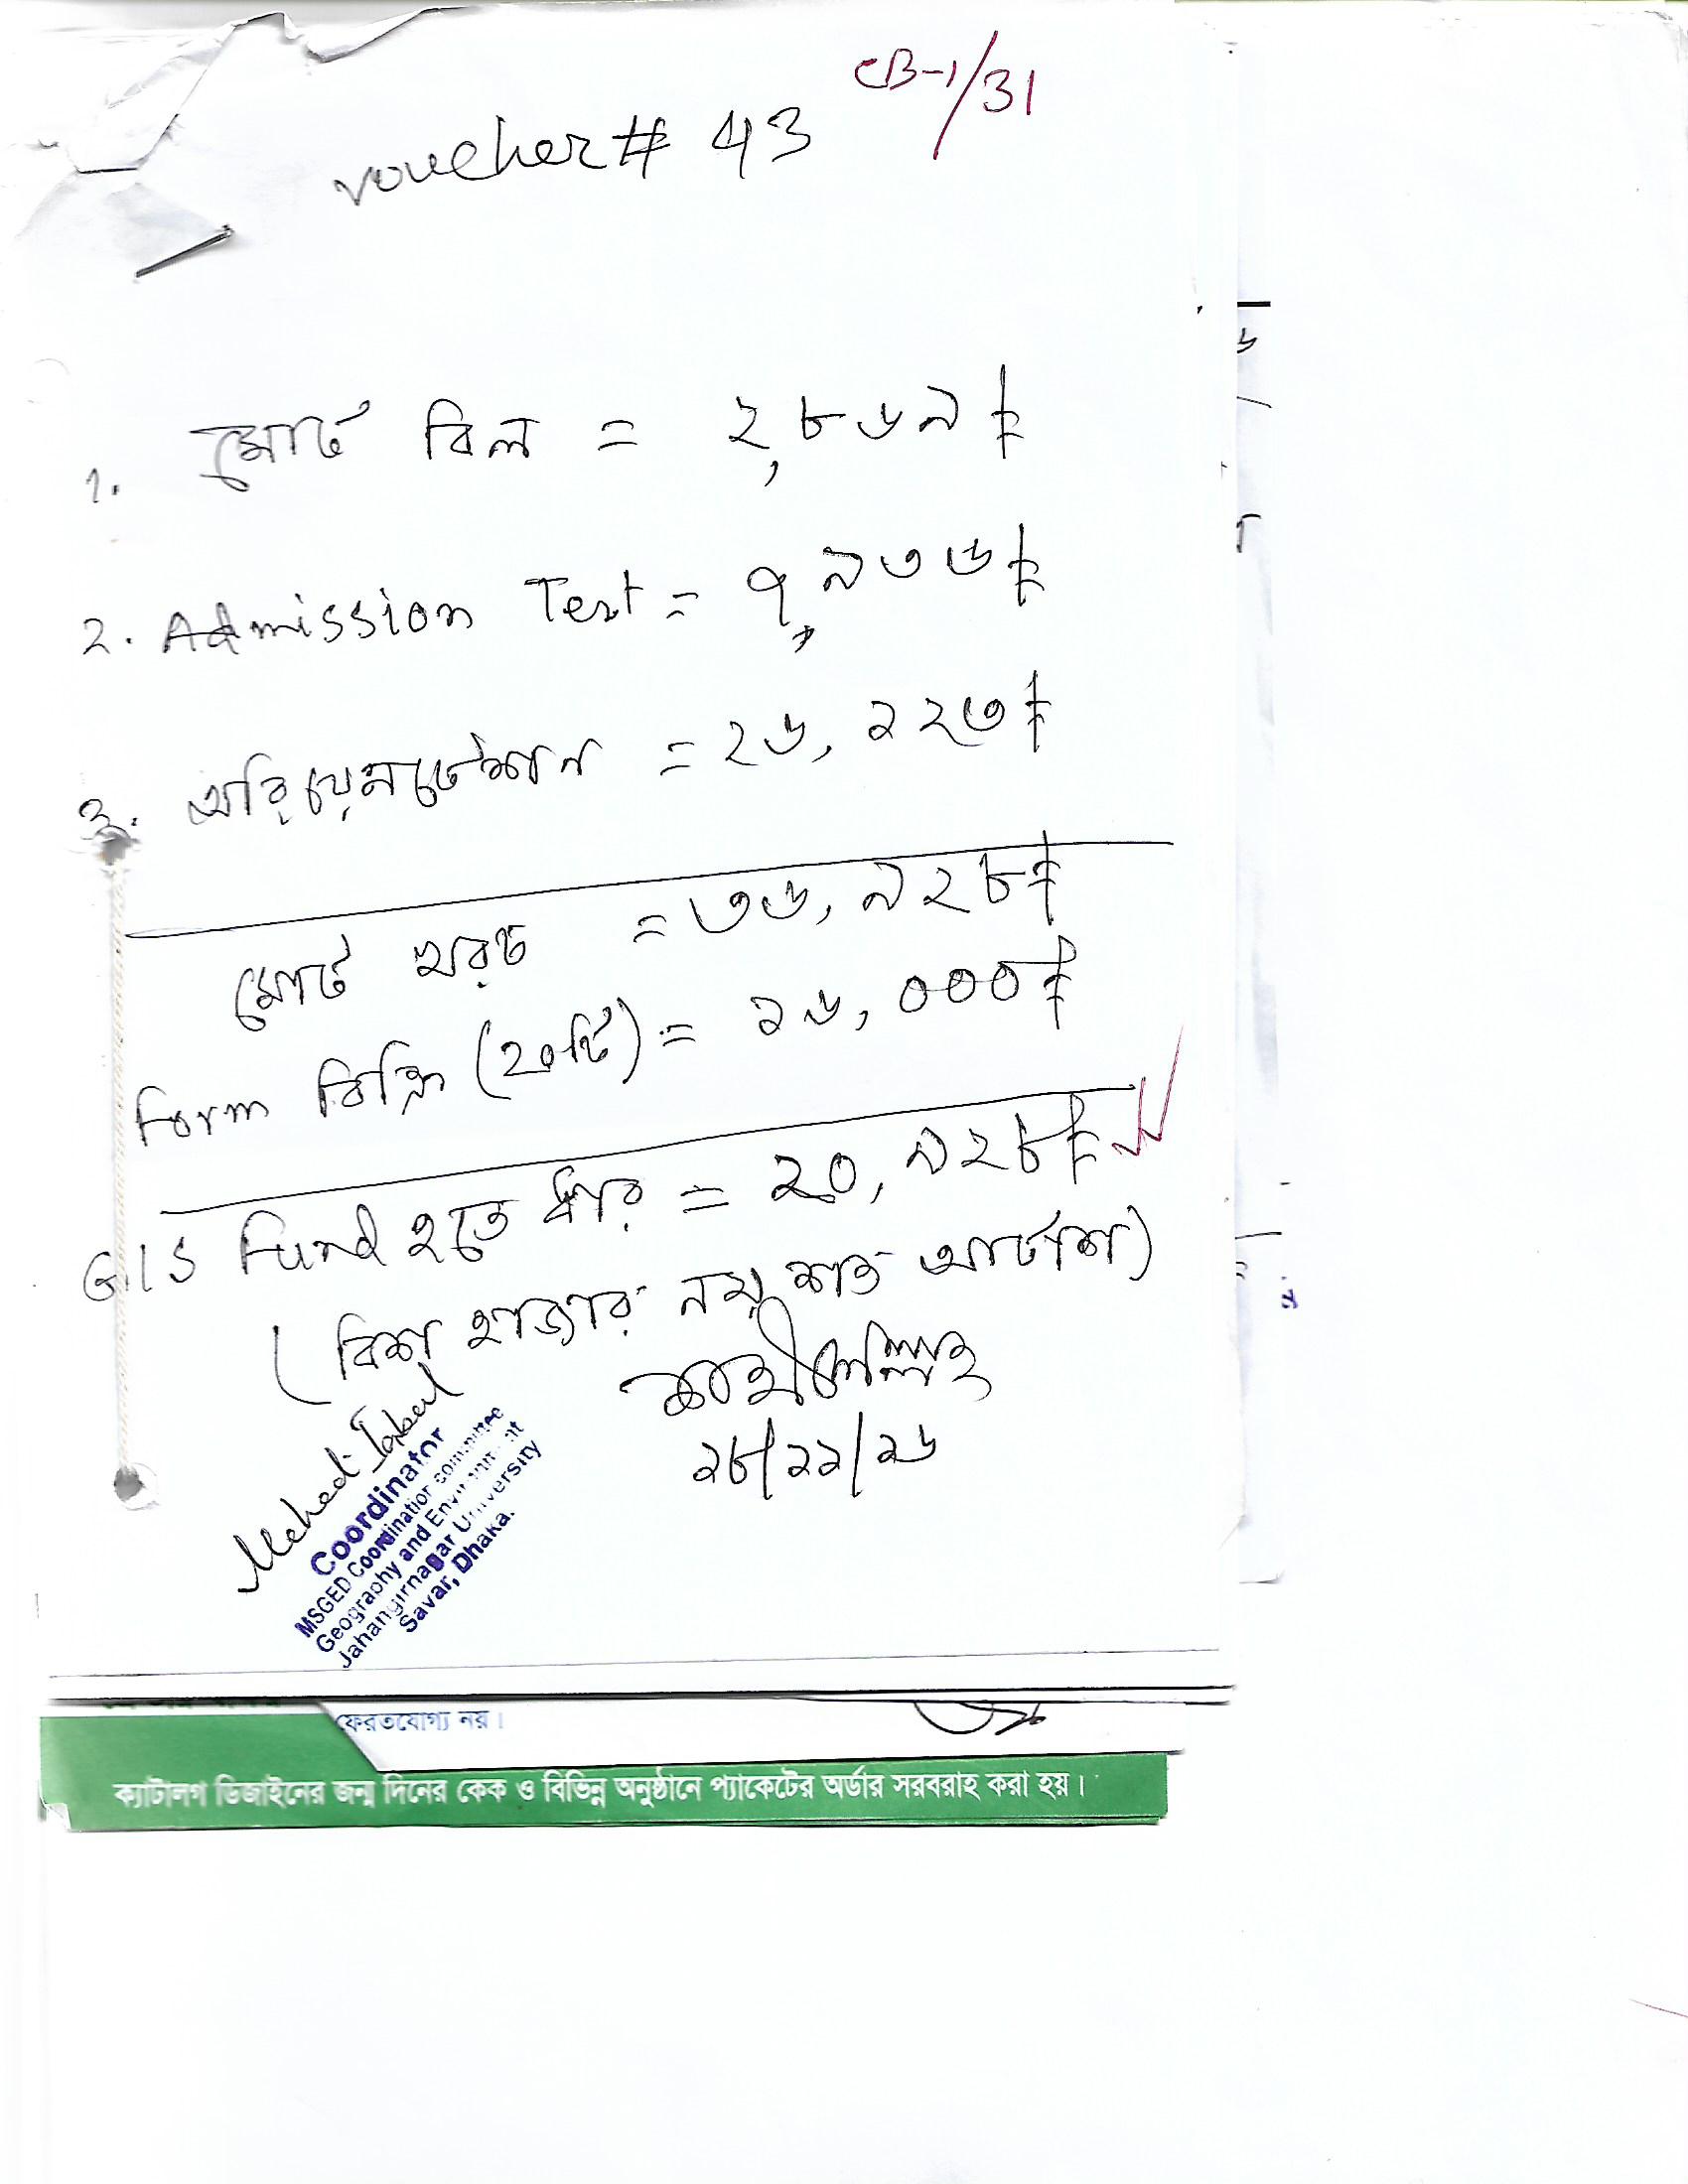 CB-1/31
voucher# 43
1. মোট বিল = ২,৮৬৯ ৳
2. Admission Test = ৭,৯৩৬ ৳
3. অরিয়েনটেশান = ২৬,১২৩ ৳
মোট খরচ = ৩৬,৯২৮ ৳
Form বিক্রি (২০টি) = ১৬,০০০ ৳
GIS Fund হতে ধার = ২০,৯২৮ ৳
(বিশ হাজার নয় শত আটাশ)
১৮/১১/১৬
Mehedi Iqbal
Coordinator
MSGED Coordination committee
Geography and Environment
Jahangirnagar University
Savar, Dhaka.
ফেরতযোগ্য নয়।
ক্যাটালগ ডিজাইনের জন্ম দিনের কেক ও বিভিন্ন অনুষ্ঠানে প্যাকেটের অর্ডার সরবরাহ করা হয়।